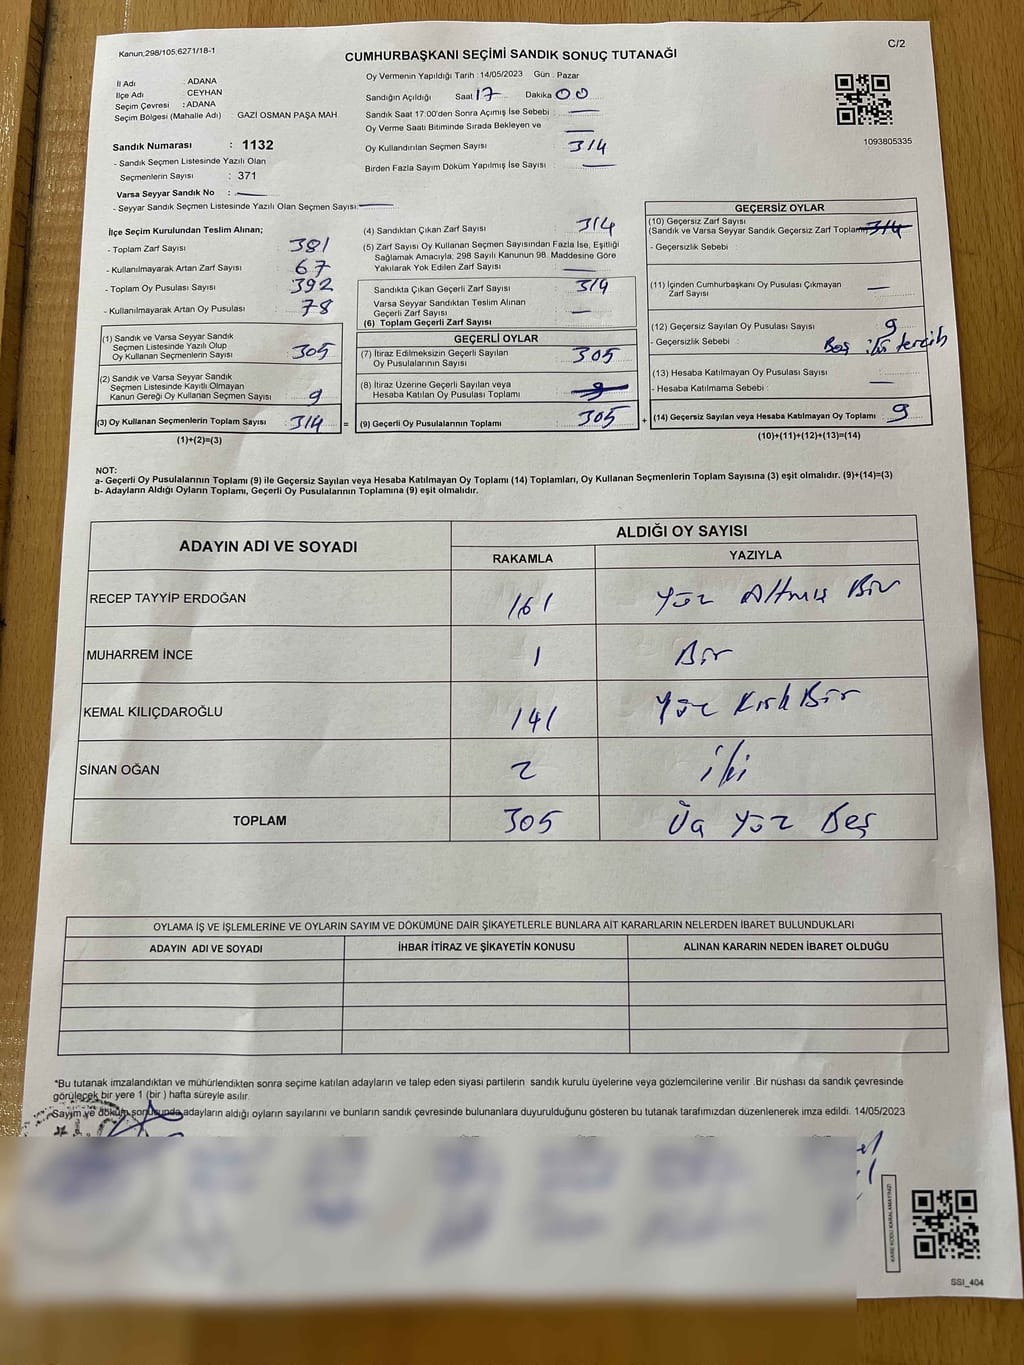 Kanun,298/105,6271/18-1
C/2
CUMHURBAŞKANI SEÇİMİ SANDIK SONUÇ TUTANAĞI
İl Adı : ADANA
İlçe Adı : CEYHAN
Seçim Çevresi : ADANA
Seçim Bölgesi (Mahalle Adı) : GAZİ OSMAN PAŞA MAH
Sandık Numarası : 1132
- Sandık Seçmen Listesinde Yazılı Olan
Seçmenlerin Sayısı : 371
Varsa Seyyar Sandık No :
- Seyyar Sandık Seçmen Listesinde Yazılı Olan Seçmen Sayısı:
Oy Vermenin Yapıldığı Tarih : 14/05/2023 Gün : Pazar
Sandığın Açıldığı Saat 17 Dakika 00
Sandık Saat 17:00'den Sonra Açımış İse Sebebi :
Oy Verme Saati Bitiminde Sırada Bekleyen ve
Oy Kullandırılan Seçmen Sayısı : 314
Birden Fazla Sayım Döküm Yapılmış İse Sayısı :
1093805335
İlçe Seçim Kurulundan Teslim Alınan;
- Toplam Zarf Sayısı : 381
- Kullanılmayarak Artan Zarf Sayısı : 67
- Toplam Oy Pusulası Sayısı : 392
- Kullanılmayarak Artan Oy Pusulası : 78
(1) Sandık ve Varsa Seyyar Sandık
Seçmen Listesinde Yazılı Olup
Oy Kullanan Seçmenlerin Sayısı : 305
(2) Sandık ve Varsa Seyyar Sandık
Seçmen Listesinde Kayıtlı Olmayan
Kanun Gereği Oy Kullanan Seçmen Sayısı : 9
(3) Oy Kullanan Seçmenlerin Toplam Sayısı : 314 =
(1)+(2)=(3)
(4) Sandıktan Çıkan Zarf Sayısı : 314
(5) Zarf Sayısı Oy Kullanan Seçmen Sayısından Fazla İse, Eşitliği
Sağlamak Amacıyla, 298 Sayılı Kanunun 98. Maddesine Göre
Yakılarak Yok Edilen Zarf Sayısı :
Sandıkta Çıkan Geçerli Zarf Sayısı : 314
Varsa Seyyar Sandıktan Teslim Alınan
Geçerli Zarf Sayısı :
(6) Toplam Geçerli Zarf Sayısı
GEÇERLİ OYLAR
(7) İtiraz Edilmeksizin Geçerli Sayılan
Oy Pusulalarının Sayısı : 305
(8) İtiraz Üzerine Geçerli Sayılan veya
Hesaba Katılan Oy Pusulası Toplamı : 9
(9) Geçerli Oy Pusulalarının Toplamı : 305 +
GEÇERSİZ OYLAR
(10) Geçersiz Zarf Sayısı
(Sandık ve Varsa Seyyar Sandık Geçersiz Zarf Toplamı) 314
- Geçersizlik Sebebi :
(11) İçinden Cumhurbaşkanı Oy Pusulası Çıkmayan
Zarf Sayısı :
(12) Geçersiz Sayılan Oy Pusulası Sayısı : 9
- Geçersizlik Sebebi : Boş iki tercih
(13) Hesaba Katılmayan Oy Pusulası Sayısı :
- Hesaba Katılmama Sebebi :
(14) Geçersiz Sayılan veya Hesaba Katılmayan Oy Toplamı : 9
(10)+(11)+(12)+(13)=(14)
NOT:
a- Geçerli Oy Pusulalarının Toplamı (9) ile Geçersiz Sayılan veya Hesaba Katılmayan Oy Toplamı (14) Toplamları, Oy Kullanan Seçmenlerin Toplam Sayısına (3) eşit olmalıdır. (9)+(14)=(3)
b- Adayların Aldığı Oyların Toplamı, Geçerli Oy Pusulalarının Toplamına (9) eşit olmalıdır.
ADAYIN ADI VE SOYADI
ALDIĞI OY SAYISI
RAKAMLA YAZIYLA
RECEP TAYYİP ERDOĞAN 161 Yüz Altmış Bir
MUHARREM İNCE 1 Bir
KEMAL KILIÇDAROĞLU 141 Yüz Kırk Bir
SİNAN OĞAN 2 iki
TOPLAM 305 Üç Yüz Beş
OYLAMA İŞ VE İŞLEMLERİNE VE OYLARIN SAYIM VE DÖKÜMÜNE DAİR ŞİKAYETLERLE BUNLARA AİT KARARLARIN NELERDEN İBARET BULUNDUKLARI
ADAYIN ADI VE SOYADI İHBAR İTİRAZ VE ŞİKAYETİN KONUSU ALINAN KARARIN NEDEN İBARET OLDUĞU
*Bu tutanak imzalandıktan ve mühürlendikten sonra seçime katılan adayların ve talep eden siyasi partilerin sandık kurulu üyelerine veya gözlemcilerine verilir .Bir nüshası da sandık çevresinde
görülecek bir yere 1 (bir ) hafta süreyle asılır.
Sayım ve döküm sonucunda adayların aldığı oyların sayılarını ve bunların sandık çevresinde bulunanlara duyurulduğunu gösteren bu tutanak tarafımızdan düzenlenerek imza edildi. 14/05/2023
KARE KODU KARALAMAYINIZ!
SSİ_404